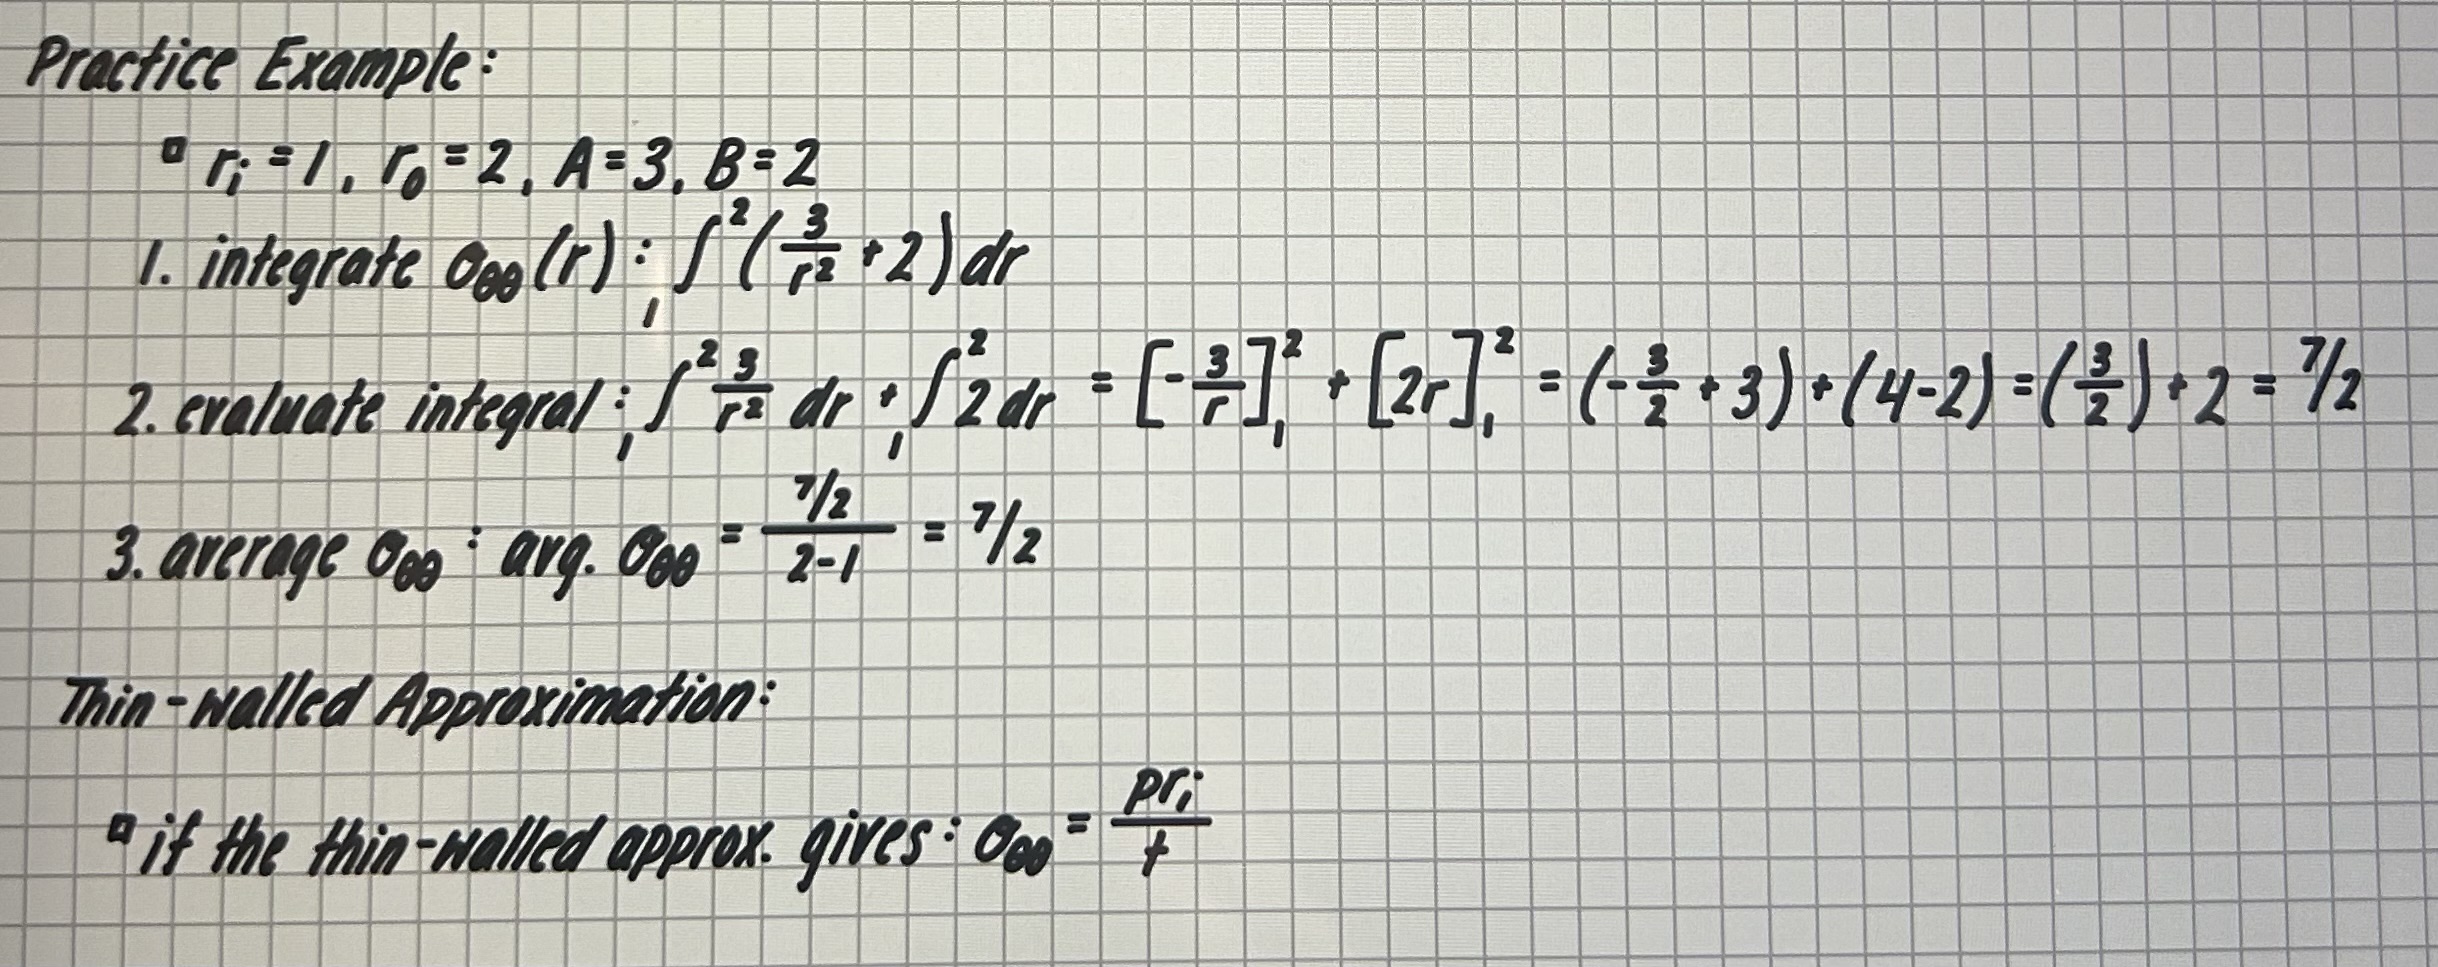 Practice Example:
▫ rᵢ = 1, r₀ = 2, A = 3, B = 2
1. integrate σθθ(r) : ∫₁² (3/r² + 2) dr
2. evaluate integral : ∫₁² 3/r² dr + ∫₁² 2 dr = [-3/r]₁² + [2r]₁² = (-3/2 + 3) + (4-2) = (3/2) + 2 = 7/2
3. average σθθ : avg. σθθ = (7/2)/(2-1) = 7/2
Thin-walled Approximation:
▫ if the thin-walled approx. gives : σθθ = prᵢ/t